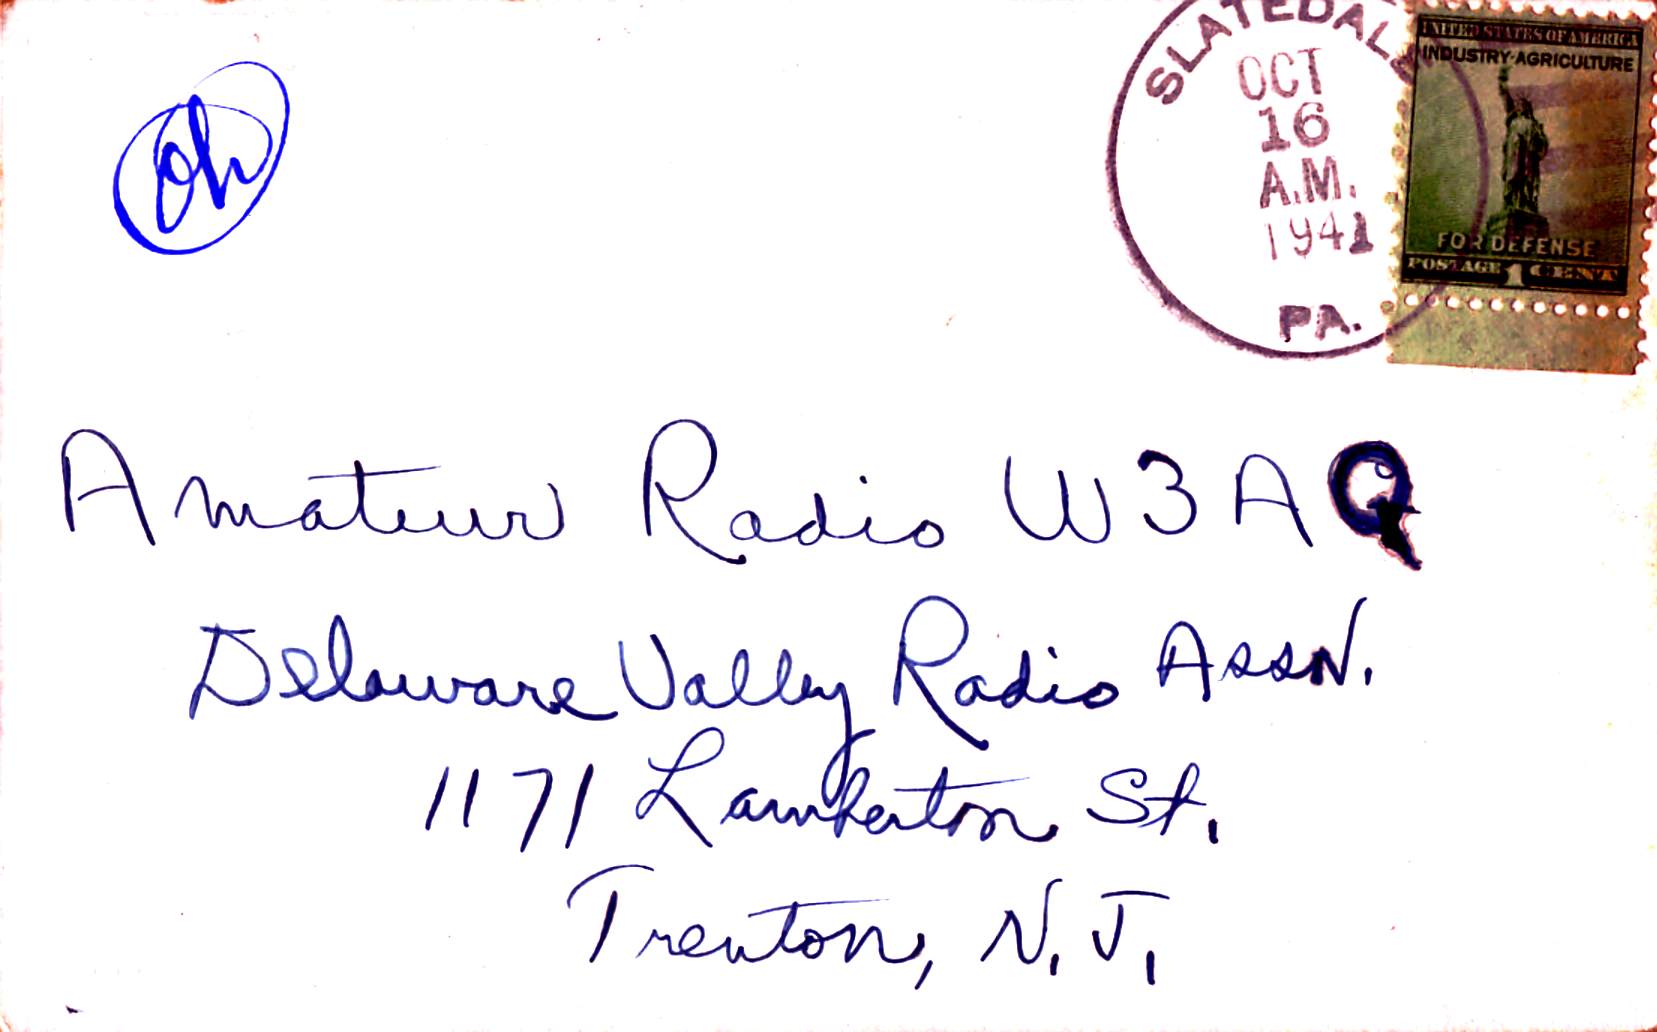 SLATEDALE
OCT
16
A.M.
1941
PA.
UNITED STATES OF AMERICA
INDUSTRY-AGRICULTURE
FOR DEFENSE
POSTAGE 1 CENT
Amateur Radio W3AQ
Delaware Valley Radio Assn.
1171 Lamberton St.
Trenton, N.J.